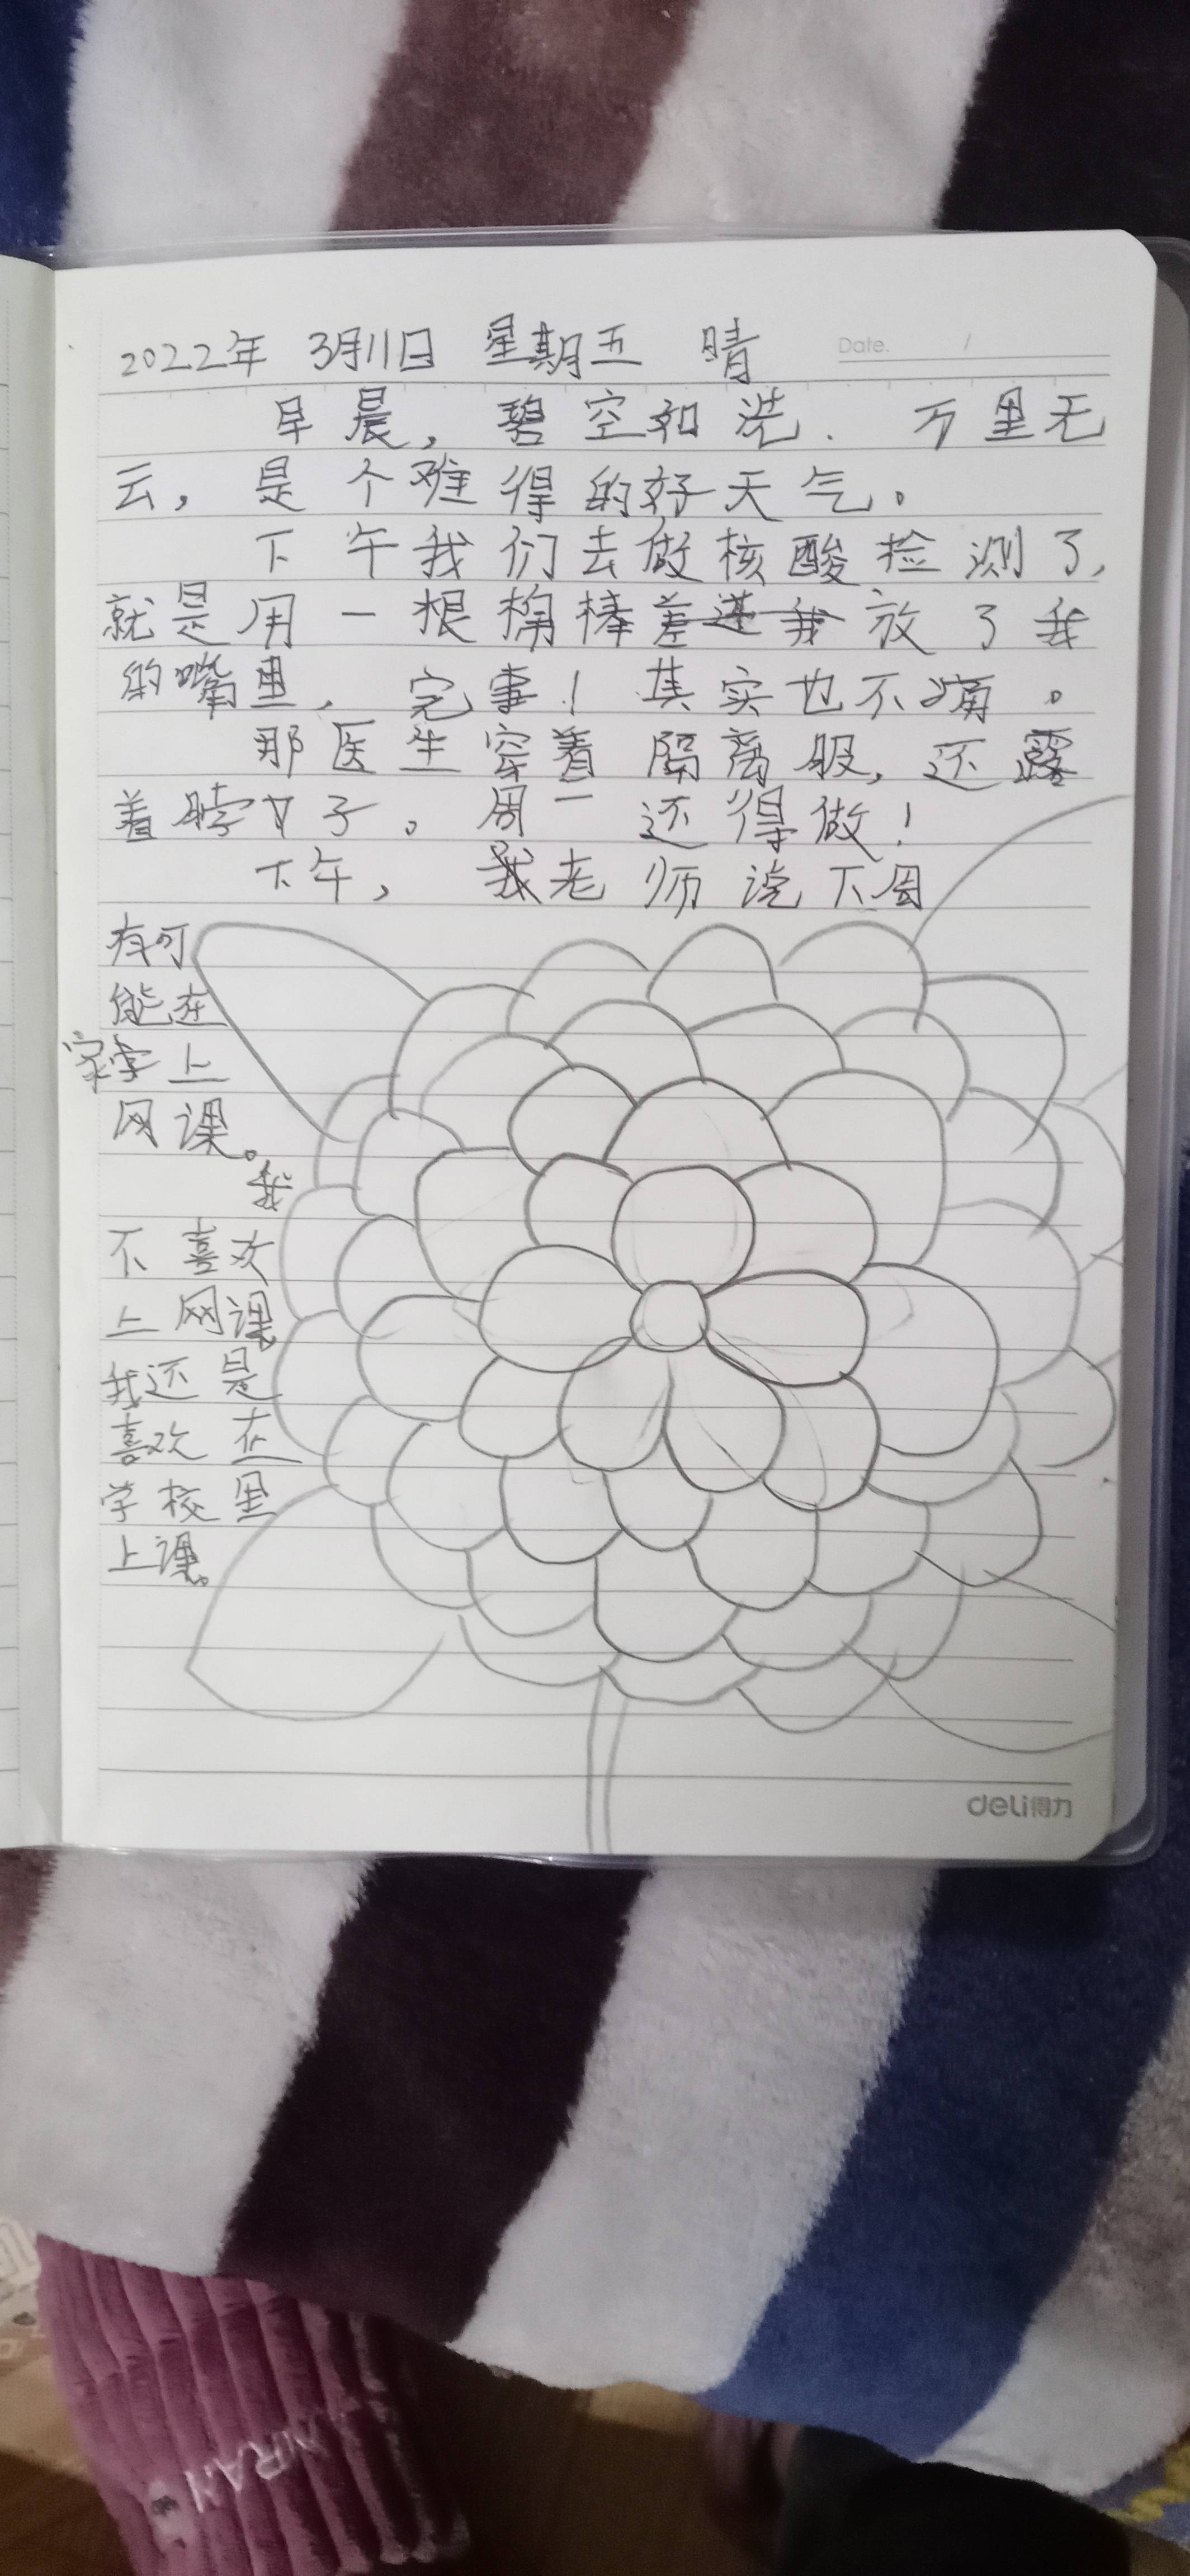 2022年 3月11日 星期五 晴
Date. /
早晨，碧空如洗．万里无
云，是个难得的好天气。
下午我们去做核酸检测了，
就是用一根棉棒差进我放了我
的嘴里，完事！其实也不痛。
那医生穿着隔离服，还露
着脖子。周一还得做！
下午，我老师说下周
有可
能在
家学上
网课。
我
不喜欢
上网课
我还是
喜欢在
学校里
上课。
deli得力
NRAN